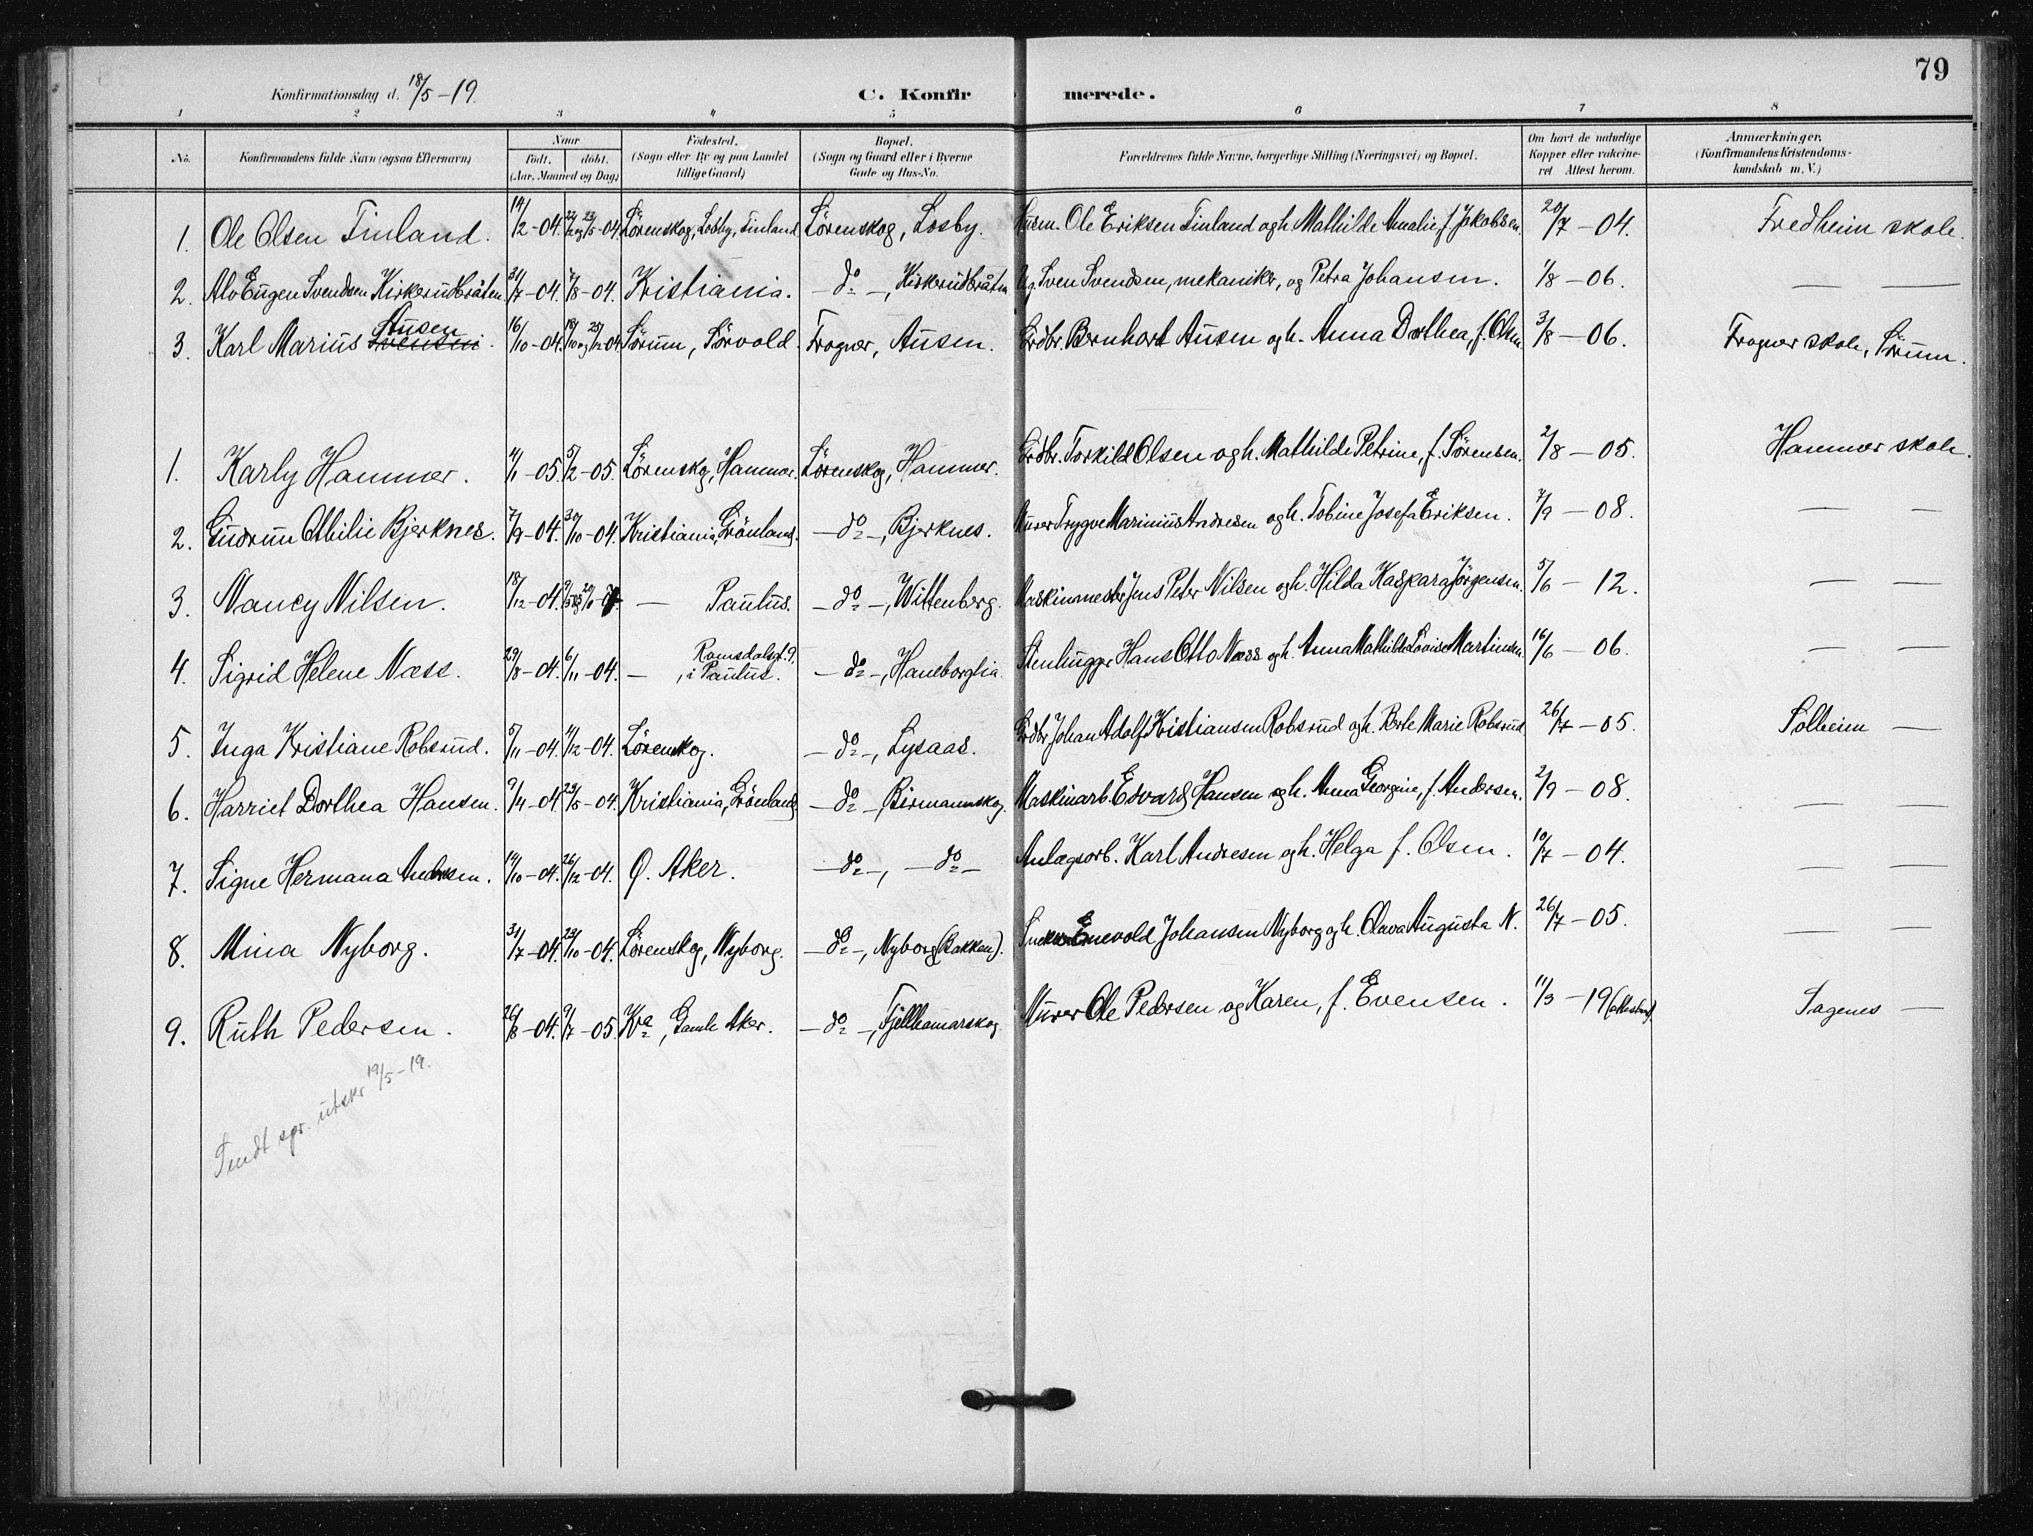 79
Konfirmationsdag d. 18/5-19. C. Konfir merede.
1 2 3 4 5 6 7 8
No. Konfirmandens fulde Navn (ogsaa Efternavn) Naar Født. døbt. (Aar, Maaned og Dag) Fødested. (Sogn eller By og paa Landet tillige Gaard) Bopæl. (Sogn og Gaard eller i Byerne Gade og Hus-No. Forældrenes fulde Navne, borgerlige Stilling (Næringsvei) og Bopæl. Om havt de naturlige Kopper eller vakcineret Attest herom. Anmærkninger. (Konfirmandens Kristendomskundskab m. V.)
1. Ole Olsen Finland. 14/2-04. Lörenskog, Losby, Finland Lörenskog, Losby. Husm. Ole Eriksen Finland og h. Mathilde Amalie, f. Jakobsen. 20/7-04. Fredheim skole.
2. Alv Eugen Svendsen Kirkerudbråten 31/7-04. 7/8-04. Kristiania. -do-, Kirkerudbråten Ug. Sven Svendsen, mekaniker, og Petra Johansen. 1/8-06. — —
3. Karl Marius Svensen Ausen. 16/10-04. Sørum, Sörvold. Frogner, Ausen. Grdbr. Bernhart Ausen og h. Anna Dorthea, f. Olsen 3/8-06. Frogner skole, Sørum.
1. Karly Hammer. 4/1-05. 5/2-05. Lörenskog, Hammer. Lörenskog, Hammer. Grdbr. Torkild Olsen og h. Mathilde Petrine, f. Sørensen. 2/8-05. Hammer skole.
2. Gudrun Othilie Bjerknes. 7/9-04. 30/10-04. Kristiania, Grönland. -do-, Bjerknes. Murer Trygve Marinius Andresen og h. Tobine Josefa Eriksen. 7/9-08. — —
3. Nancy Nilsen. 18/12-04. — Paulus. -do-, Wittenberg. Maskinmester Jens Peter Nilsen og h. Hilda Kaspara Jørgensen. 5/6-12. — —
4. Sigrid Helene Næss. 29/8-04. 6/11-04. — Romsdalsgt. 9, i Paulus. -do-, Haneborglia. Stenhugger Hans Otto Næss og h. Anna Mathilde Lovise Martinsen. 16/6-06. — —
5. Inga Kristiane Robsrud. 5/11-04. 4/12-04. Lörenskog. -do-, Lysaas. Grdbr. Johan Adolf Kristiansen Robsrud og h. Berte Marie Robsrud 26/7-05. Solheim —
6. Harriet Dorthea Hansen. 9/4-04 29/5-04. Kristiania, Grönland, -do-, Birmannskog. Maskinarb. Edvard Hansen og h. Anna Georgine, f. Andersen. 2/9-08. — —
7. Signe Hermana Andresen. 19/10-04. 26/12-04. Ø. Aker. -do-, -do- Anlægsarb. Karl Andresen og h. Helga f. Olsen. 10/7-04. — —
8. Mina Nyborg. 31/7-04. 23/10-04. Lörenskog, Nyborg. -do-, Nyborg (Bakken). Enevold Johansen Nyborg og h. Olava Augusta N. 26/7-05. — —
9. Ruth Pedersen. 26/8-04. 9/7-05. Kra, Gamle Aker. -do-, Fjellhamarskog Murer Ole Pedersen og Karen, f. Evensen. 11/3-19 Sagenes —
Sendt spr. utskr 19/5-19.